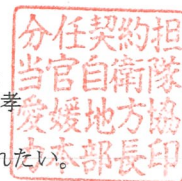 分任契約担
当官自衛隊
愛媛地方協
力本部長印
孝
れたい。